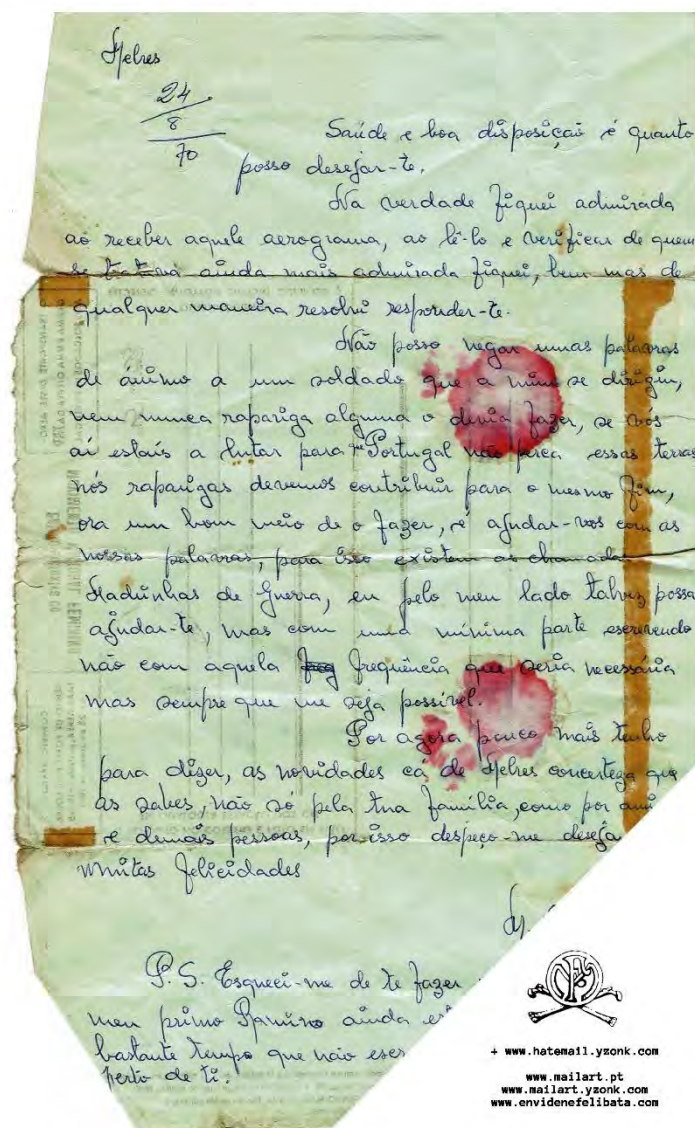 Febres
24
8
70
Saúde e boa disposição é quanto
posso desejar-te.
Na verdade fiquei admirada
ao receber aquele aerograma, ao lê-lo e verificar de quem
se tratava ainda mais admirada fiquei, bem mas de
qualquer maneira resolvi responder-te.
Não posso negar umas palavras
de ânimo a um soldado que a mim se dirigiu,
nem nunca rapariga alguma o devia fazer, se vós
aí estais a lutar para que Portugal não perca essas terras
nós raparigas devemos contribuir para o mesmo fim,
ora um bom meio de o fazer, é ajudar-vos com as
nossas palavras, para isso existem as chamadas
Madrinhas de Guerra, eu pelo meu lado talvez possa
ajudar-te, mas com uma mínima parte escrevendo
não com aquela frequência que seria necessária
mas sempre que me seja possível.
Por agora pouco mais tenho
para dizer, as novidades cá de Febres concerteza que
as sabes, não só pela tua família, como por
e demais pessoas, por isso despeço-me
muitas felicidades
P.S. Esqueci-me de te fazer
meu primo Ramiro ainda
bastante tempo que não
perto de ti.
+ www.hatemail.yzonk.com
www.mailart.pt
www.mailart.yzonk.com
www.envidenefelibata.com